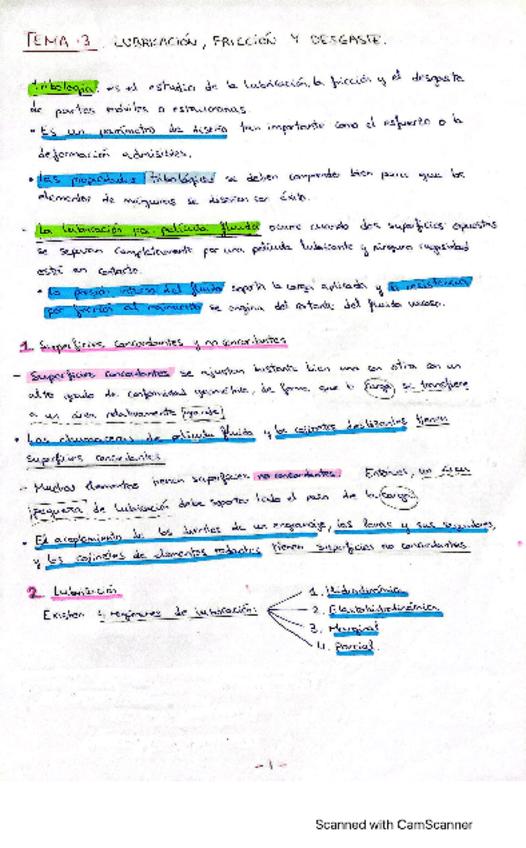 TEMA 3. LUBRICACIÓN, FRICCIÓN Y DESGASTE.
Tribología: es el estudio de la lubricación, la fricción y el desgaste
de partes móviles o estacionarias.
• Es un parámetro de diseño tan importante como el esfuerzo o la
deformación admisibles.
• Las propiedades tribológicas se deben comprender bien para que los
elementos de máquinas se diseñen con éxito.
- La lubricación por película fluida ocurre cuando dos superficies opuestas
se separan completamente por una película lubricante y ninguna rugosidad
está en contacto.
• La presión interna del fluido soporta la carga aplicada y la resistencia
por fricción al movimiento se origina del cortante del fluido viscoso.
1. Superficies concordantes y no concordantes
- Superficies concordantes se ajustan bastante bien una con otra con un
alto grado de conformidad geométrica, de forma que la carga se transfiere
a un área relativamente grande
• Las chumaceras de película fluida y los cojinetes deslizantes tienen
superficies concordantes
- Muchos elementos tienen superficies no concordantes. Entonces, un área
pequeña de lubricación debe soportar todo el peso de la carga
• El acoplamiento de los dientes de un engranaje, las levas y sus seguidores,
y los cojinetes de elementos rodantes tienen superficies no concordantes
2. Lubricación
Existen 4 regímenes de lubricación:
1. Hidrodinámica
2. Elastohidrodinámica
3. Marginal
4. Parcial.
- 1 -
Scanned with CamScanner